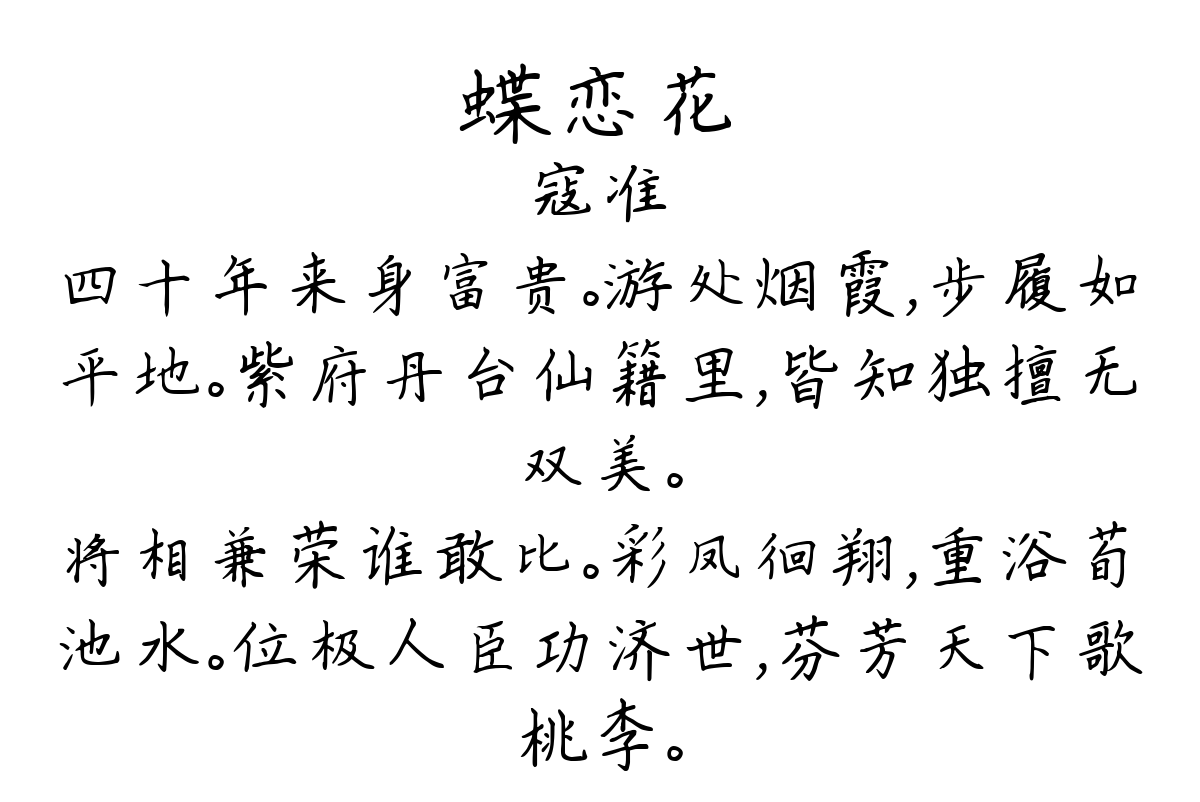 蝶恋花
寇准
四十年来身富贵。游处烟霞,步履如
平地。紫府丹台仙籍里,皆知独擅无
双美。
将相兼荣谁敢比。彩凤徊翔,重浴荀
池水。位极人臣功济世,芬芳天下歌
桃李。